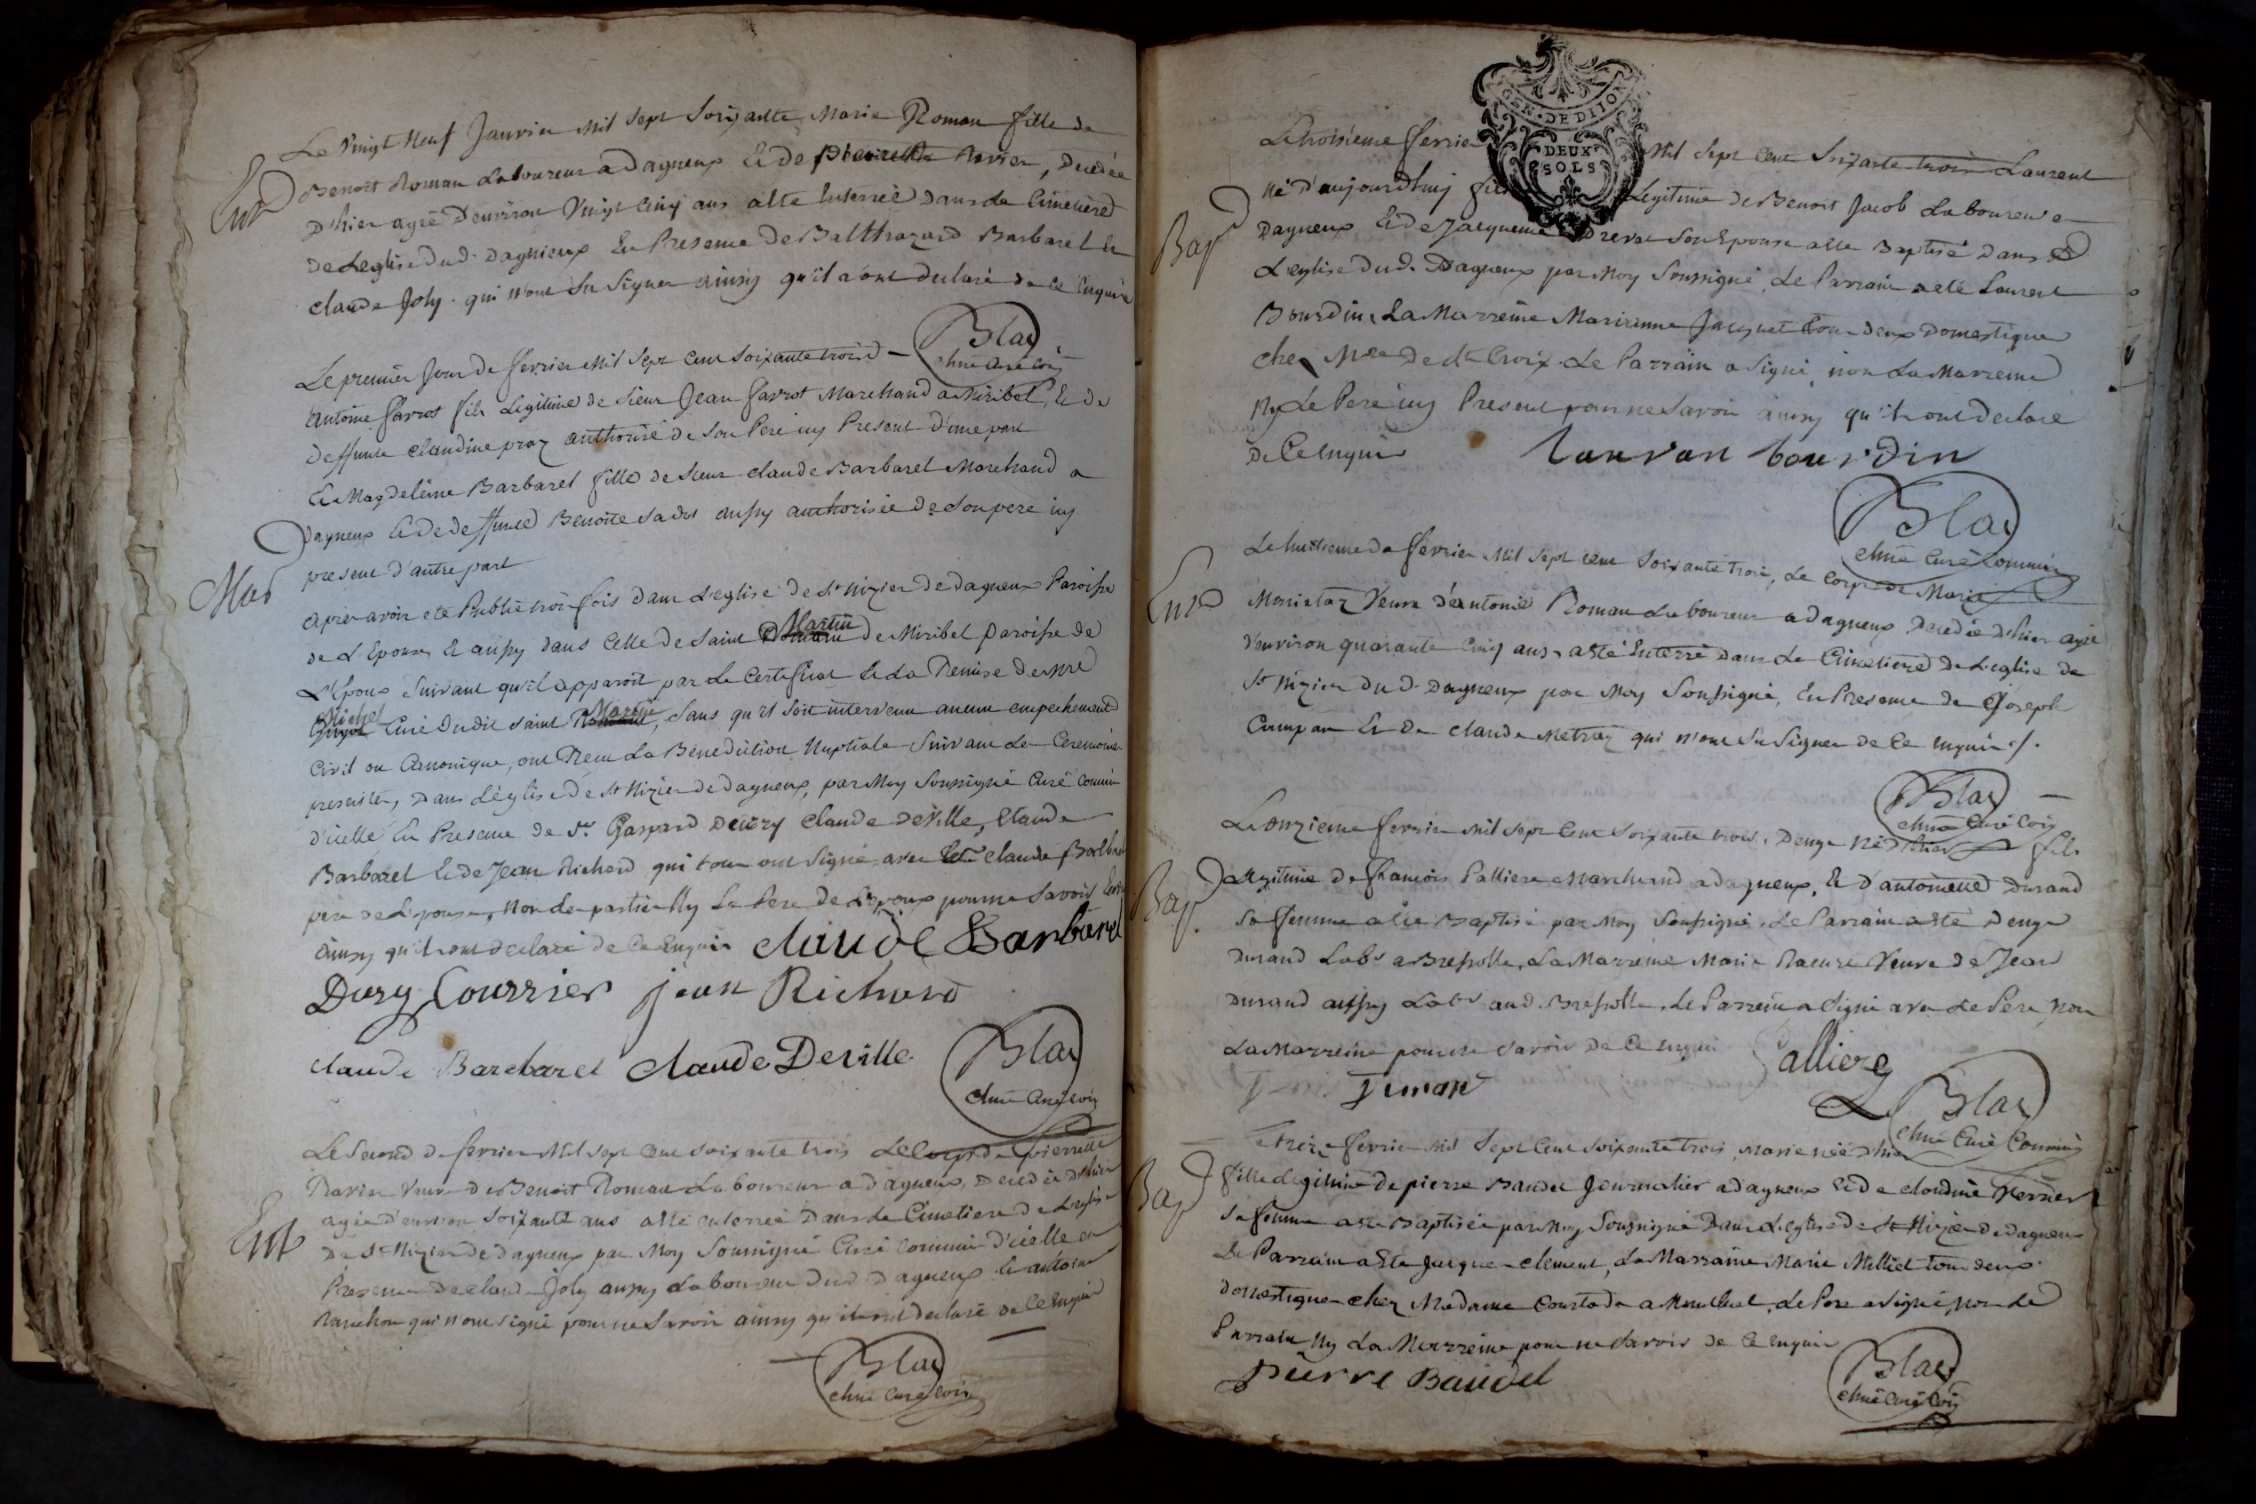 Ent
Le Vingt Neuf Janvier Mil Sept Soixante Marie Roman fille de
Benoit Roman Laboureur a Dagneux Et de Pierrette Ravier, Decedée
D'hier agée d'environ Vingt Cinq ans a été Enterrée Dans Le Cimetiere
De Leglise Dud. Dagnieux En Presence De Balthazard Barbaret Et
Claude Joly. qui n'ont Su Signer ainsy qu'il a ont declaré de ce Enquis
Blac
Curé Com
Mar
Le premier Jour de fevrier Mil Sept Cent Soixante trois
Antoine favrot fils Legitime de Sieur Jean favrot Marchand a Miribel, Et de
deffunte Claudine praz authorisé de Son Pere icy Present D'une part
Et Magdeleine Barbaret fille de Sieur Claude Barbaret Marchand a
Dagneux Et De deffunte Benoite aussy authorisée De Son pere icy
present d'autre part
Apres avoir eté Publié trois fois dans Leglise de St Nizier de Dagneux Paroisse
de L'Epouse, Et aussy dans Celle de Saint Martin de Miribel paroisse de
L'Epoux Suivant qu'il apparoit par Le Certificat Et La Remise de Mre
Michel Curé Dudit Saint Martin, Sans qu'il Soit intervenu aucun empechement
Civil ou Canonique, ont Recu La Benediction Nuptiale Suivant Les Ceremonies
prescites, Dans L'église de St Nizier de Dagneux, par Moy Soussigné Curé Commis
d'icelle En Presence de Sr Gaspard Claude Deville, Claude
Barbaret Et de Jean Richard qui tous ont Signé avec Claude Barbaret
pere de L'epouse, Non Les parties Ny Le Pere de L'epoux pour ne Savoir
ainsy qu'ils ont declaré de Ce Enquis Claude Barbaret
Courrier jean Richard
claude Barbaret Claude Deville
Blac
Curé Com
Ent
Le Second de fevrier Mil Sept Cent Soixante trois Le Corps de pierrette
Ravier Veuve De Benoit Roman Laboureur a Dagneux, Decedée D'hier
agée d'environ Soixante ans a été enterrée Dans Le Cimetiere de Leglise
De St Nizier de Dagneux par Moy Soussigné Curé Commis D'icelle en
Presence De Claude Joly aussy Laboureur Dud. Dagneux Et antoine
qui n'ont Signé pour ne Savoir ainsy qu'ils ont declaré de Ce Enquis
Blac
Curé Com
GEN. DE DIJON
DEUX
SOLS
Bap
Le troisieme fevrier Mil Sept Cent Soixante trois Laurent
Né D'aujourdhuy fils Legitime De Benoit Jacob Laboureur a
Dagneux Et De Jacqueme Son Epouse a été Baptisé Dans
L'eglise Dud. Dagneux par Moy Soussigné, Le Parrain a eté Laurent
Bourdin, La Marreine Marianne Jacquet tous Deux Domestique
chez De Ste Croix. Le Parrain a Signé, non La Marreine
Ny Le Pere icy Present pour ne Savoir ainsy qu'ils ont Declaré
De Ce Enquis Lauran bourdin
Blac
Curé Commis
Ent
Le huitieme De fevrier Mil Sept cent Soixante trois, Le Corps de Marie
Veuve d'antoine Roman Laboureur a Dagneux Decedée D'hier agée
d'environ quarante Cinq ans, a été Enterré Dans Le Cimetiere De L'eglise de
St Nizier Du d. Dagneux par Moy Soussigné, En Presence de Joseph
Et De Claude Metraz qui n'ont Su Signer de Ce Enquis ./.
Blac
Curé Com
Bap.
Le onzieme fevrier Mil Sept Cent Soixante trois. Denys Né D'hier fils
Legitime De François Palliere Marchand a Dagneux, Et D'antoinette Durand
Sa femme a été Baptisé par Moy Soussigné, Le Parrain a été Denys
Durand Labr a Bressolle, La Marreine Marie Veuve De Jean
Durand aussy Labr aud. Bressolle. Le Parrein a Signé avec Le Pere, Non
La Marreine pour ne Savoir De Ce Enquis Palliere
Blac
Curé Commis
Bap
Le treize fevrier Mil Sept Cent Soixante trois, Marie née D'hier
fille Legitime De pierre Baudet Journalier a Dagneux Et De Claudine
Sa femme a été Baptisée par Moy Soussigné Dans L'eglise De St Nizier De Dagneux
Le Parrain a Eté Jacques Clement, La Marraine Marie Milliet tous deux
Domestiques chez Madame a Montluel, Le Pere a Signé, non Le
Parrain Ny La Marreine pour ne Savoir De Ce Enquis
pierre Baudet
Blac
Curé Com